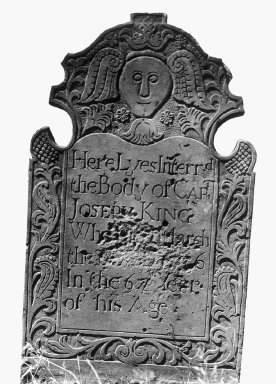 Here Lyes Interrd
the Body of CAPT
JOSEPH KING
Who March
the 6
In the 67 Year
of his Age